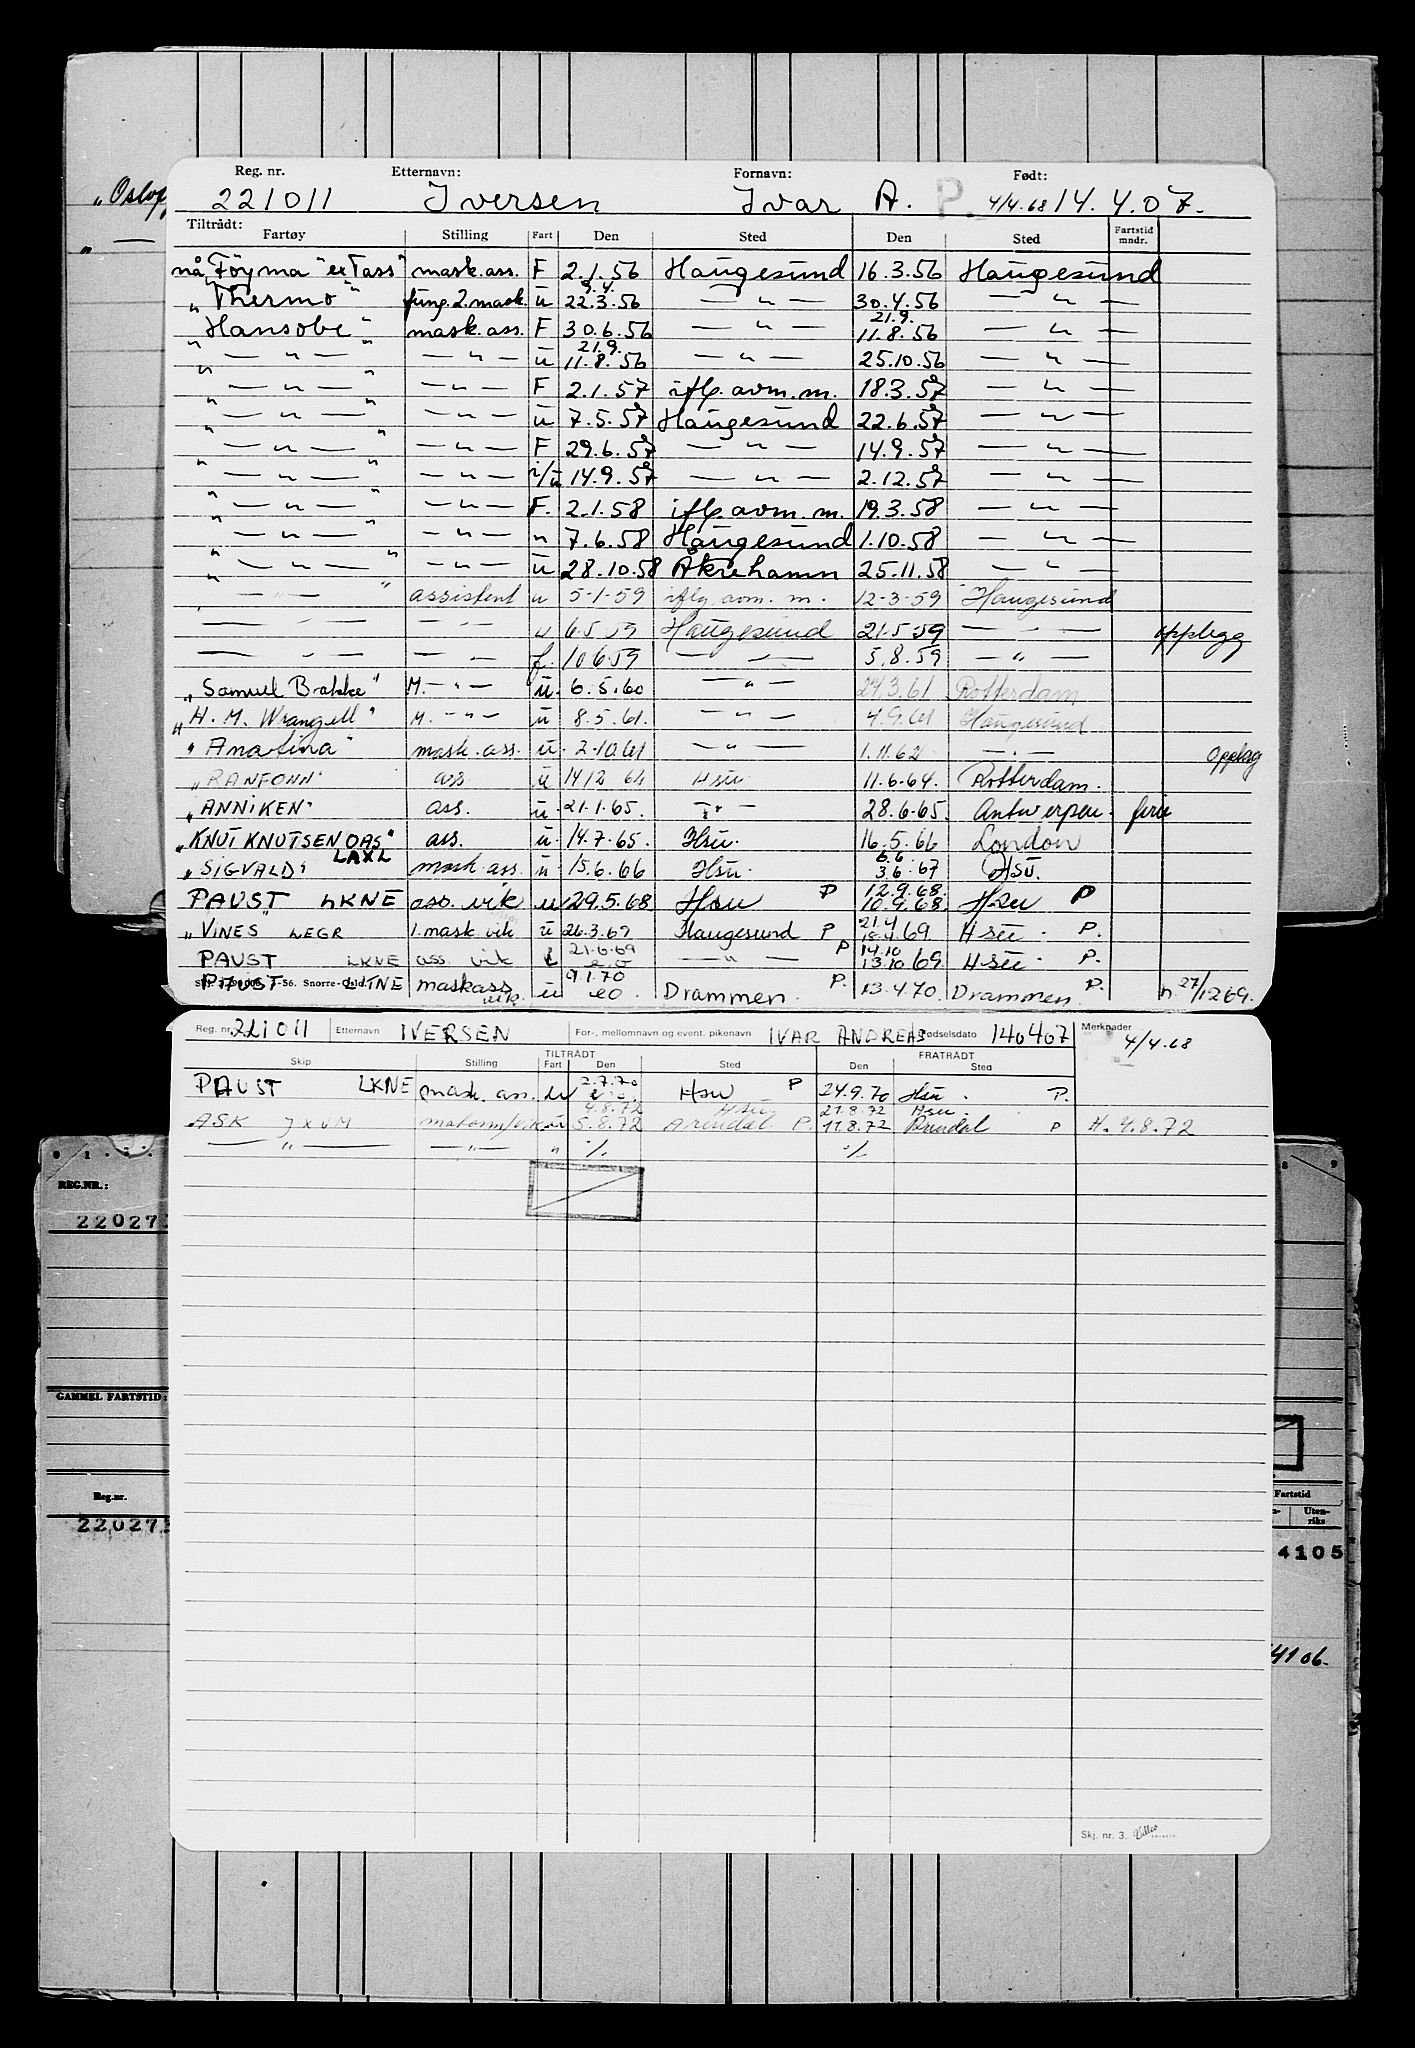 Reg. nr. Etternavn: Fornavn: Født:
221011 Iversen Ivar A. P. 4/4.68 14.4.07.
Tiltrådt: Fartstid mndr.
Fartøy Stilling Fart Den Sted Den Sted
nå "Føyma" ex Tass" mask.ass. F 2.1.56 Haugesund 16.3.56 Haugesund
9.4.
"Thermo" fung.2.mask. u 22.3.56 — " — 30.4.56 — " —
21.9.
"Hansobe" mask.ass. F 30.6.56 — " — 11.8.56 — " —
21.9.
" — " — " — " — u 11.8.56 — " — 25.10.56 — " —
" — " — " — " — F 2.1.57 iflg. avm. m. 18.3.57 — " —
" — " — " — " — u 7.5.57 Haugesund 22.6.57 — " —
" — " — " — " — F 29.6.57 — " — 14.9.57 — " —
" — " — " — " — i/u 14.9.57 — " — 2.12.57 — " —
" — " — " — " — F. 2.1.58 iflg. avm. m. 19.3.58 — " —
" — " — " — " — " 7.6.58 Haugesund 1.10.58 — " —
" — " — " — " — u 28.10.58 Åkrehamn 25.11.58 — " —
" — " — " assistent u 5-1-59 iflg. avm. m. 12-3-59 Haugesund
— " — — " — u 6.5.59 Haugesund 21.5.59 — " — opplegg
— " — — " — f. 10.6.59 — " — 5.8.59 — " —
"Samuel Bakke" M. — " — u. 6.5.60 — " — 24.3.61 Rotterdam
"H. M. Wrangell" M. — " — u 8.5.61. — " — 4.9.61 Haugesund
"Anatina" mask.ass. u. 2.10.61 — " — 1.11.62 — " — opplag
"RANFONN" ass u 14 12 63 Hsu 11.6-64. Rotterdam.
"ANNIKEN" ass. u. 21.1.65. — " — 28.6-65. Antwerpen. ferie
"KNUT KNUTSEN OAS" ass. u. 14.7.65. Hsu. 16.5.66 London
LAXL 6.6.
"SIGVALD" mask.ass. u 15.6.66 Hsu. 3.6.67 Hsu.
12.9.68.
PAUST LKNE ass. vik u 29.5.68 Hsu P 10.9.68. Hsu P
21.4
"VINES" LEGR 1. mask. vik u 26.3.69 Haugesund P 18.4 69. Hsu. P.
21.6.69 14.10
PAUST LKNE ass. vik — " — P 13.10 69. Hsu. P.
9.1.70
PAUST LKNE maskass vik. u eo Drammen. P. 13.4.70. Drammen. P. h. 27/12 69.
-56. Snorre-
Reg. nr. 221011 Etternavn IVERSEN For-, mellomnavn og event. pikenavn IVAR ANDREAS Fødselsdato 140407 Merknader
4/4.68
TILTRÅDT FRATRÅDT
Skip Stilling Fart Den Sted Den Sted
2.7.70
PAUST LKNE mask. ass. Hsu P 24.9.70 Hsu. P.
4.8.72 Hsu 21.8.72 Hsu.
ASK JXVM 5.8.72 Arendal P. 11.8.72 Arendal P H. 4.8.72
— " — — " — " % %
Skj. nr. 3.
"Oslofj
" —
REG.NR.:
22027
GAMMEL FARTSTID:
Reg.nr.
22027
Fartstid
Uten-riks
4105
4106.